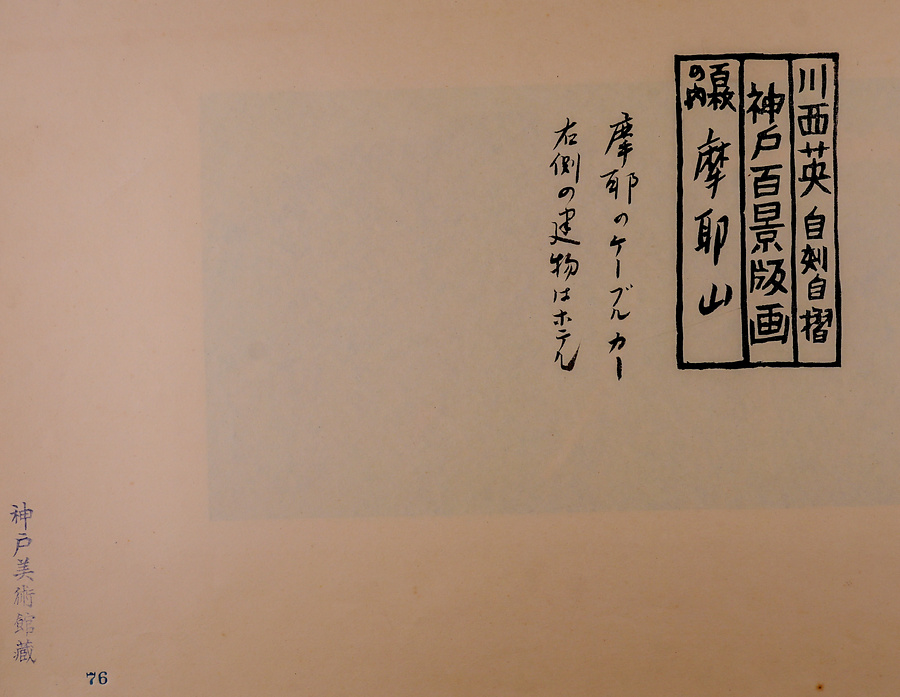 川西英 自刻自摺
神戸百景版画
百枚の内 摩耶山
摩耶のケーブルカー
右側の建物はホテル
神戸美術館蔵
76